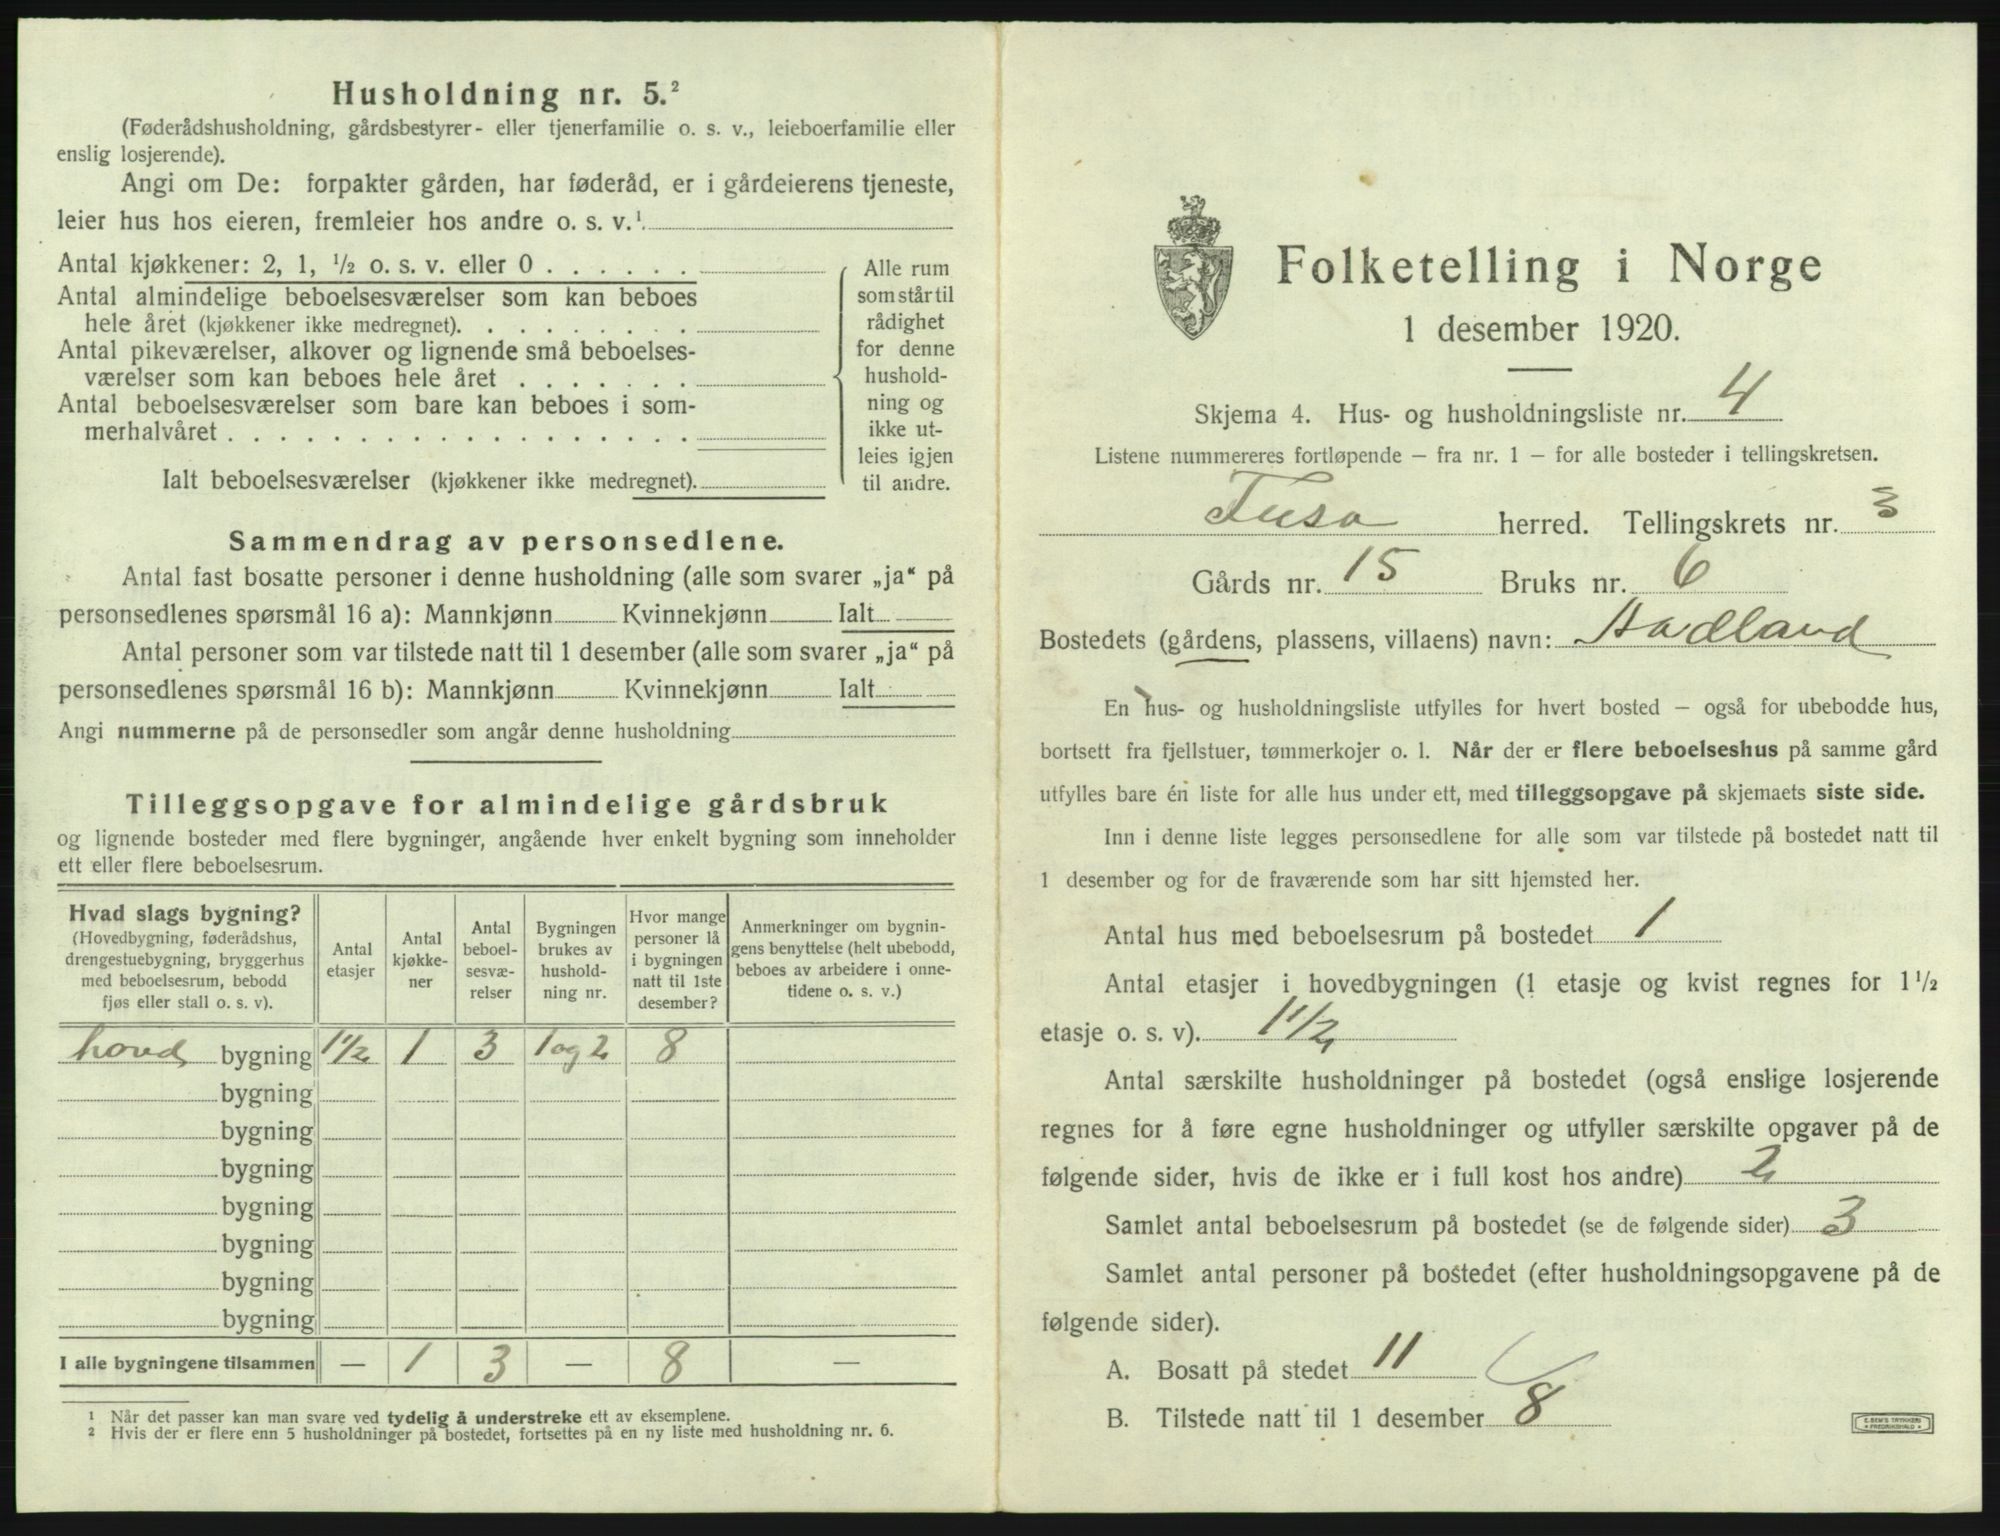 Husholdning nr. 5.²
(Føderådshusholdning, gårdsbestyrer- eller tjenerfamilie o. s. v., leieboerfamilie eller
enslig losjerende).
Angi om De: forpakter gården, har føderåd, er i gårdeierens tjeneste,
leier hus hos eieren, fremleier hos andre o. s. v.¹
Antal kjøkkener: 2, 1, ½ o. s. v. eller 0 . . . . . .
Antal almindelige beboelsesværelser som kan beboes
hele året (kjøkkener ikke medregnet). . . . . . . . .
Antal pikeværelser, alkover og lignende små beboelses-
værelser som kan beboes hele året . . . . . . .
Antal beboelsesværelser som bare kan beboes i som-
merhalvåret . . . . . . . . . . . . . . . . . .
Ialt beboelsesværelser (kjøkkener ikke medregnet).
Alle rum
som står til
rådighet
for denne
hushold-
ning og
ikke ut-
leies igjen
til andre.
Sammendrag av personsedlene.
Antal fast bosatte personer i denne husholdning (alle som svarer „ja“ på
personsedlenes spørsmål 16 a): Mannkjønn Kvinnekjønn Ialt
Antal personer som var tilstede natt til 1 desember (alle som svarer „ja“ på
personsedlenes spørsmål 16 b): Mannkjønn Kvinnekjønn Ialt
Angi nummerne på de personsedler som angår denne husholdning
Tilleggsopgave for almindelige gårdsbruk
og lignende bosteder med flere bygninger, angående hver enkelt bygning som inneholder
ett eller flere beboelsesrum.
Hvad slags bygning?
(Hovedbygning, føderådshus,
drengestuebygning, bryggerhus
med beboelsesrum, bebodd
fjøs eller stall o. s. v).
Antal
etasjer
Antal
kjøkke-
ner
Antal
beboel-
sesvæ-
relser
Bygningen
brukes av
hushold-
ning nr.
Hvor mange
personer lå
i bygningen
natt til 1ste
desember?
Anmerkninger om bygnin-
gens benyttelse (helt ubebodd,
beboes av arbeidere i onne-
tidene o. s. v.)
hoved bygning 1½ 1 3 1 og 2 8
bygning
bygning
bygning
bygning
bygning
bygning
bygning
I alle bygningene tilsammen — 1 3 — 8 —
¹ Når det passer kan man svare ved tydelig å understreke ett av eksemplene.
² Hvis der er flere enn 5 husholdninger på bostedet, fortsettes på en ny liste med husholdning nr. 6.
Folketelling i Norge
1 desember 1920.
Skjema 4. Hus- og husholdningsliste nr. 4
Listene nummereres fortløpende — fra nr. 1 — for alle bosteder i tellingskretsen.
Fusa herred. Tellingskrets nr. 3
Gårds nr. 15 Bruks nr. 6
Bostedets (gårdens, plassens, villaens) navn: Hadland
En hus- og husholdningsliste utfylles for hvert bosted — også for ubebodde hus,
bortsett fra fjellstuer, tømmerkojer o. l. Når der er flere beboelseshus på samme gård
utfylles bare én liste for alle hus under ett, med tilleggsopgave på skjemaets siste side.
Inn i denne liste legges personsedlene for alle som var tilstede på bostedet natt til
1 desember og for de fraværende som har sitt hjemsted her.
Antal hus med beboelsesrum på bostedet 1
Antal etasjer i hovedbygningen (1 etasje og kvist regnes for 1½
etasje o. s. v). 1½
Antal særskilte husholdninger på bostedet (også enslige losjerende
regnes for å føre egne husholdninger og utfyller særskilte opgaver på de
følgende sider, hvis de ikke er i full kost hos andre) 2
Samlet antal beboelsesrum på bostedet (se de følgende sider) 3
Samlet antal personer på bostedet (efter husholdningsopgavene på de
følgende sider).
A. Bosatt på stedet 11
B. Tilstede natt til 1 desember 8